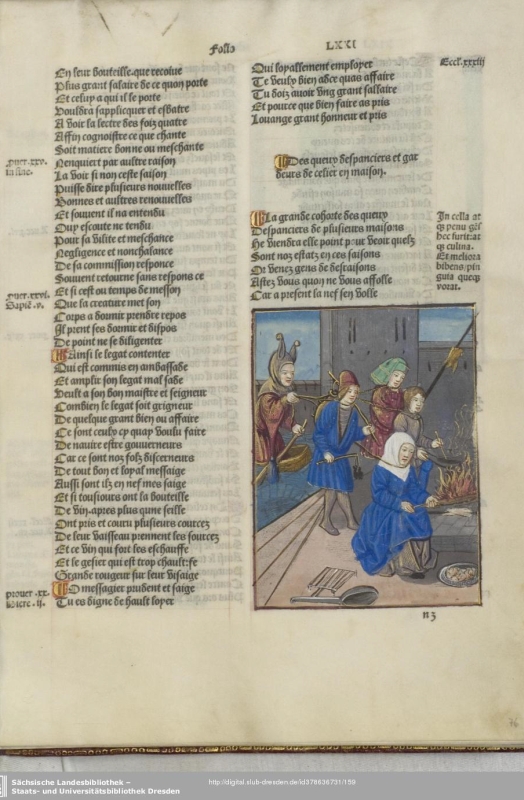 Folio LXXI
En leur bouteille que recoiue
Plus grant salaire de ce quon porte
Et celuy a qui il le porte
Vouldra sapplicquer et esbatre
A voir la lectre des foiz quatre
Affin cognoistre ce que chante
Soit matiere bonne ou meschante
Nenquiert par aultre raison
La voir si non ceste saison
Puisse dire plusieurs nouuelles
Bonnes et aultres renouuelles
Et souuent il na entendu
Ouy escoute ne tendu
Pour sa vilite et meschance
Negligence et nonchalance
De sa commission responce
Souuent retourne sans respons ce
Et si cest ou temps de messon
Que la creature met son
Corps a dormir prendre repos
Il prent ses dormir et dispos
De point ne se diligenter
Ainsi le legat contenter
Qui est commis en ambassade
Et amplir son legat mal sade
Veult a son bon maistre et seigneur
Combien le legat soit grigneur
De quelque grant bien ou affaire
Ce sont ceulx cy quay voulu faire
De nauire estre gouuerneurs
Car ce sont noz folz discerneurs
De tout bon et loyal messaige
Aussi sont ilz en nef mes saige
Et si tousiours ont la bouteille
De vin apres plus qune seille
Ont pris et couru plusieurs courcez
De leur vaisseau prennent les sourcez
Et ce vin qui fort les eschauffe
Et le gesier qui est trop chault:fe
Grande rougeur sur leur visaige
O messagier prudent et saige
Tu es digne de hault loyer
prouer .xxv.
in fine.
prouer .xxvi.
Sapiẽ. v.
prouer .xx.
ii.
Qui loyallement employer
Te veulx bien adce quas affaire
Tu doiz auoir vng grant sallaire
Et pource que bien faire as pris
Louange grant honneur et pris
Eccl. xxxiij
Des queux despanciers et gar
deurs de celier en maison.
La grande cohorte des queux
Despanciers de plusieurs maisons
He viendra elle point pour veoir quelz
Sont noz estatz en ces saisons
Or venez gens de desraisons
Astez vous quon ne vous affolle
Car a present la nef sen volle
In cella at
q̃ penu gẽs
hec furit:at
q̃ culina.
Et meliora
bibens:pin
guia queq̃
vorat.
n3
76
Sächsische Landesbibliothek –
Staats- und Universitätsbibliothek Dresden
http://digital.slub-dresden.de/id378636731/159